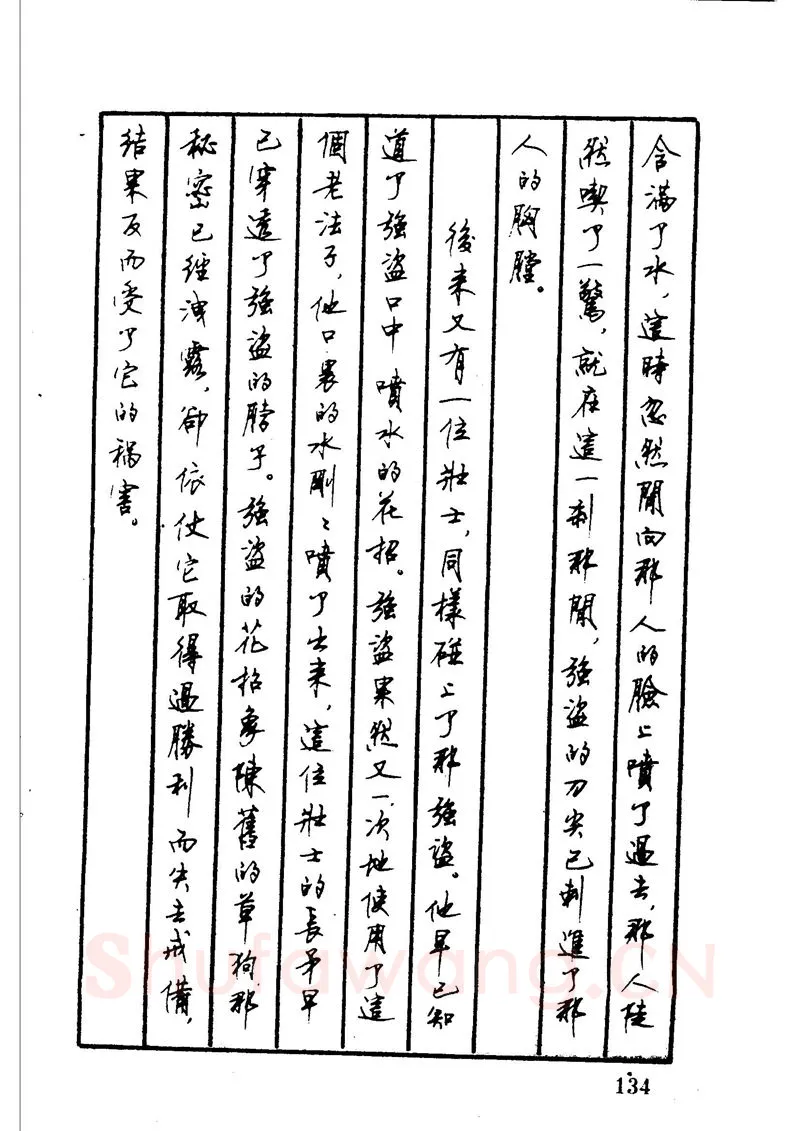 含滿了水，這時忽然間向那人的臉上噴了過去，那人陡
然喫了一驚，就在這一剎那間，強盜的刀尖已刺進了那
人的胸膛。
後来又有一位壯士，同樣碰上了那強盜。他早已知
道了強盜口中噴水的花招。強盜果然又一次地使用了這
個老法子，他口裏的水剛〻噴了出来，這位壯士的長矛早
已穿透了強盜的脖子。強盜的花招象陳舊的草狗那
秘密已經洩露，卻依仗它取得過勝利而失去戒備，
結果反而受了它的禍害。
Shufawang.CN
134